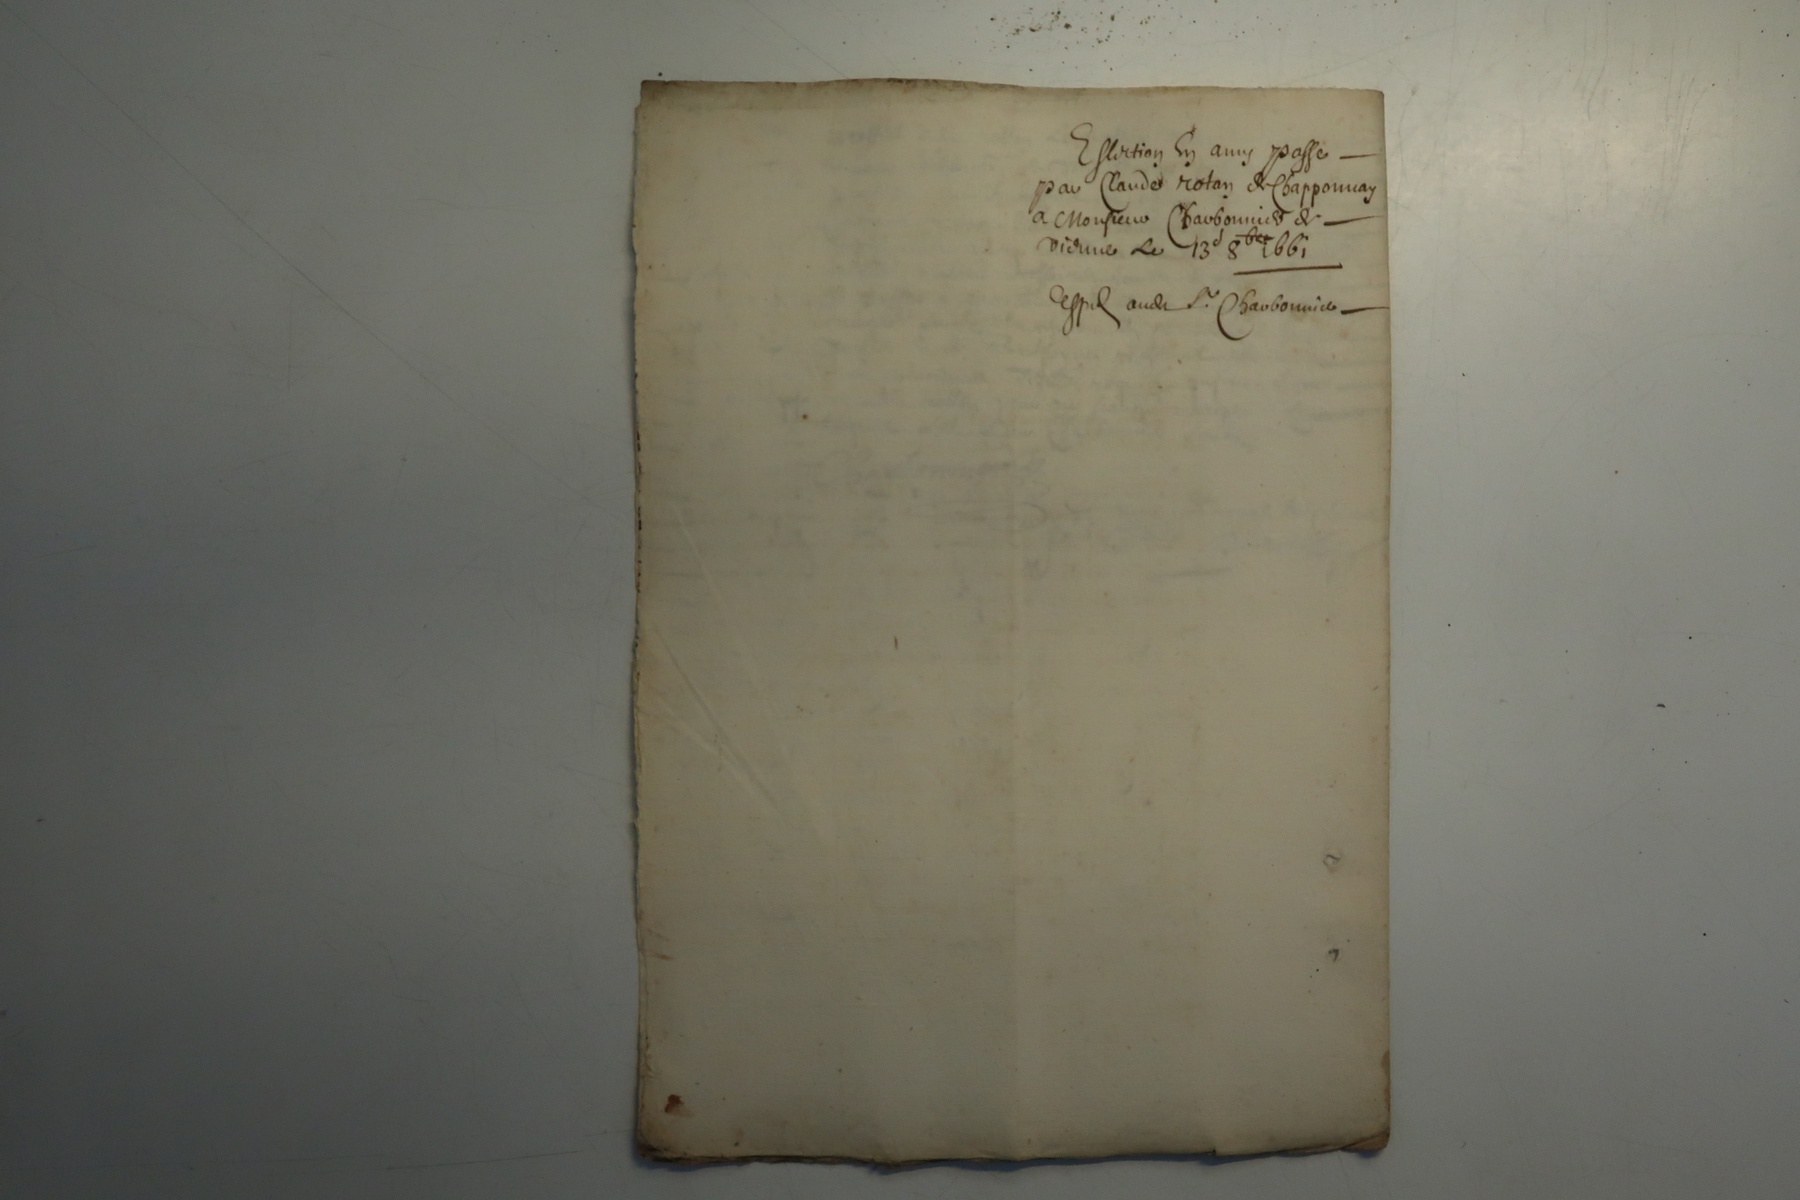 Eslection En amy passe
par Claude rotan de Chapponnay
a Monsieur Charbonnier de
vienne Le 13e 8bre 1661
Expd audit Sr Charbonnier